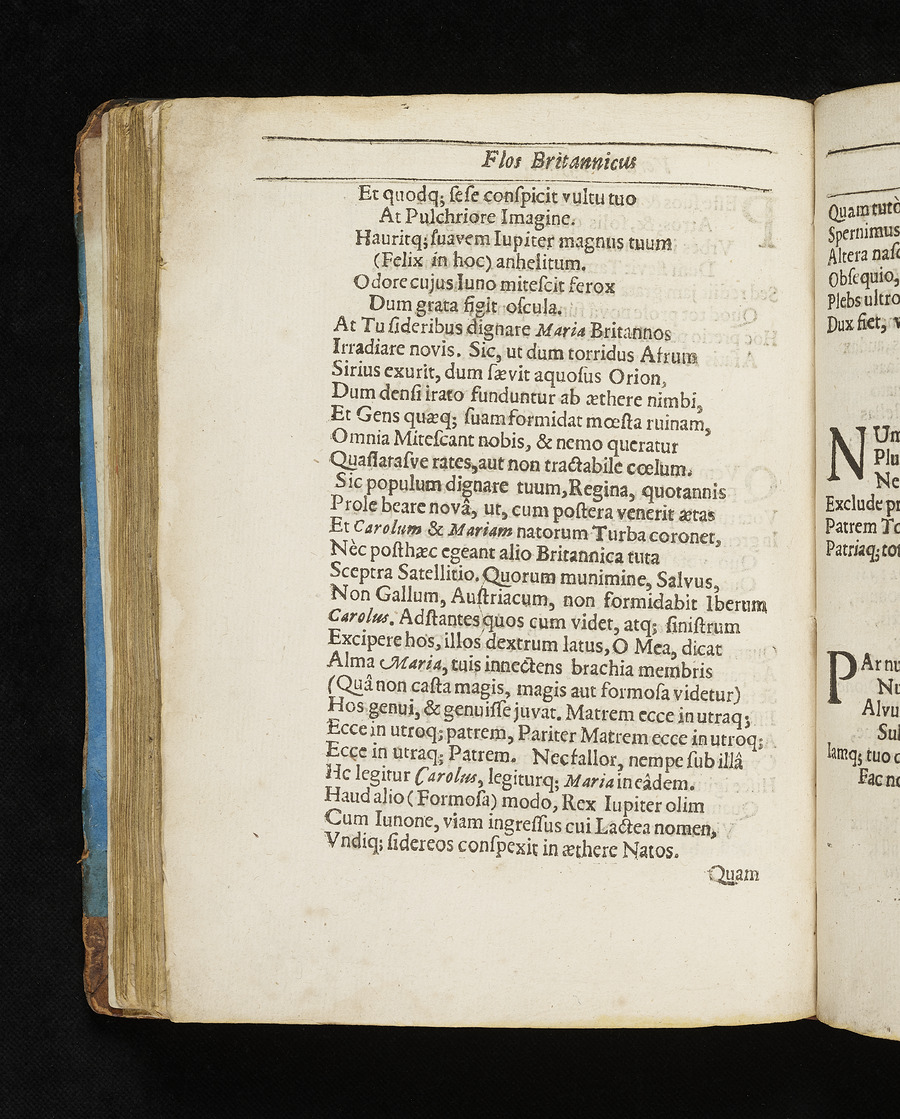 Flos Britannicus
Et quodq; ſeſe conſpicit vultu tuo
At Pulchriore Imagine.
Hauritq; ſuavem Iupiter magnus tuum
(Felix in hoc) anhelitum.
Odore cujus Iuno miteſcit ferox
Dum grata figit oſcula.
At Tu ſideribus dignare Maria Britannos
Irradiare novis. Sic, ut dum torridus Afrum
Sirius exurit, dum ſævit aquoſus Orion,
Dum denſi irato funduntur ab æthere nimbi,
Et Gens quæq; ſuam formidat mœſta ruinam,
Omnia Miteſcant nobis, & nemo queratur
Quaſſataſve rates, aut non tractabile cœlum.
Sic populum dignare tuum, Regina, quotannis
Prole beare novâ, ut, cum poſtera venerit ætas
Et Carolum & Mariam natorum Turba coronet,
Nèc poſthæc egeant alio Britannica tuta
Sceptra Satellitio. Quorum munimine, Salvus,
Non Gallum, Auſtriacum, non formidabit Iberum
Carolus. Adſtantes quos cum videt, atq; ſiniſtrum
Excipere hos, illos dextrum latus, O Mea, dicat
Alma Maria, tuis innectens brachia membris
(Quâ non caſta magis, magis aut formoſa videtur)
Hos genui, & genuiſſe juvat. Matrem ecce in utraq;
Ecce in utroq; patrem, Pariter Matrem ecce in utroq;
Ecce in utraq; Patrem. Nec fallor, nempe ſub illâ
Hc legitur Carolus, legiturq; Maria in eâdem.
Haud alio (Formoſa) modo, Rex Iupiter olim
Cum Iunone, viam ingreſſus cui Lactea nomen,
Vndiq; ſidereos conſpexit in æthere Natos.
Quam
Quam tutò
Spernimus
Altera naſc
Obſequio,
Plebs ultro
Dux fiet, v
NUm
Plu
Ne
Exclude pr
Patrem To
Patriaq; tot
PAr nu
Nu
Alvu
Sub
Iamq; tuo c
Fac no